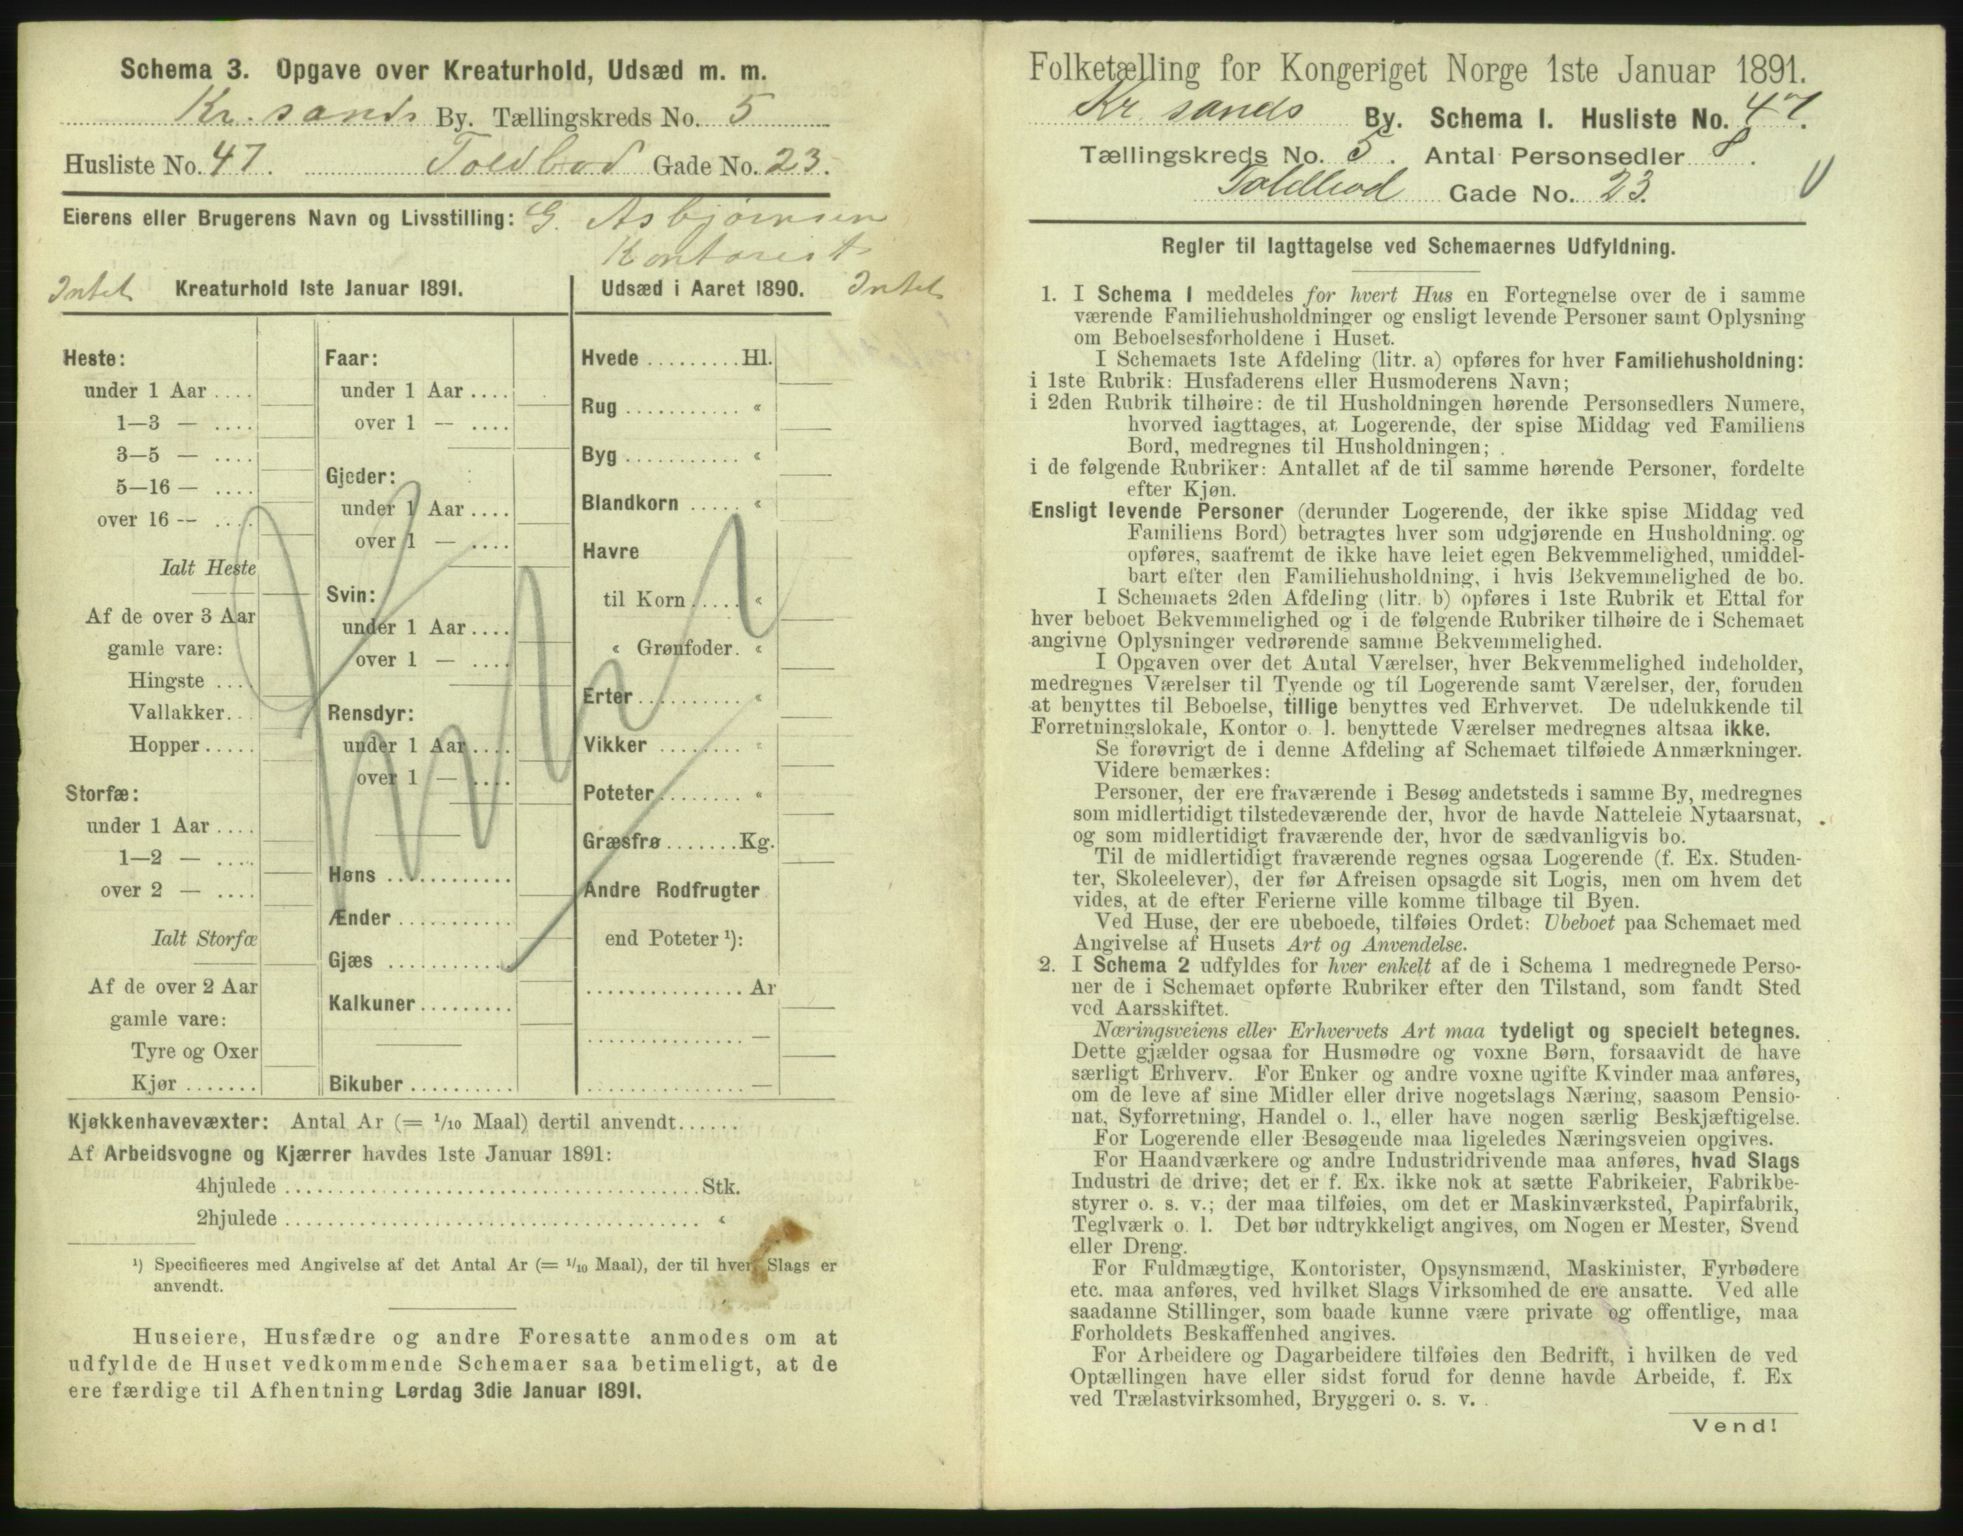 Schema 3. Opgave over Kreaturhold, Udsæd m. m.
Kr.sands By. Tællingskreds No. 5
Husliste No. 47. Toldbod Gade No. 23.
Eierens eller Brugerens Navn og Livsstilling: G. Asbjørnsen
Kontorist
Intet Kreaturhold 1ste Januar 1891.
Heste:
under 1 Aar ....
1—3 — ....
3—5 — ....
5—16 — ....
over 16 — ....
Ialt Heste
Af de over 3 Aar
gamle vare:
Hingste ....
Vallakker...
Hopper.....
Storfæ:
under 1 Aar ....
1—2 — ....
over 2 — ....
Ialt Storfæ
Af de over 2 Aar
gamle vare:
Tyre og Oxer
Kjør.......
Faar:
under 1 Aar ....
over 1 — ....
Gjeder:
under 1 Aar ....
over 1 — ....
Svin:
under 1 Aar ....
over 1 — ....
Rensdyr:
under 1 Aar ....
over 1 — ....
Høns ............
Ænder ...........
Gjæs ............
Kalkuner.........
Bikuber ..........
Udsæd i Aaret 1890. Intet
Hvede .........Hl.
Rug ........... «
Byg ........... «
Blandkorn ..... «
Havre
til Korn..... «
« Grønfoder. «
Erter.......... «
Vikker ........ «
Poteter........ «
Græsfrø.......Kg.
Andre Rodfrugter
end Poteter ¹):
...............Ar
............... —
............... —
Kjøkkenhavevæxter: Antal Ar (= 1/10 Maal) dertil anvendt......
Af Arbeidsvogne og Kjærrer havdes 1ste Januar 1891:
4hjulede ........................................Stk.
2hjulede ........................................ «
¹) Specificeres med Angivelse af det Antal Ar (= 1/10 Maal), der til hver Slags er
anvendt.
Huseiere, Husfædre og andre Foresatte anmodes om at
udfylde de Huset vedkommende Schemaer saa betimeligt, at de
ere færdige til Afhentning Lørdag 3die Januar 1891.
Folketælling for Kongeriget Norge 1ste Januar 1891.
Kr sands By. Schema I. Husliste No. 47.
Tællingskreds No. 5. Antal Personsedler 8.
Toldbod Gade No. 23.
Regler til Iagttagelse ved Schemaernes Udfyldning.
1. I Schema 1 meddeles for hvert Hus en Fortegnelse over de i samme
værende Familiehusholdninger og ensligt levende Personer samt Oplysning
om Beboelsesforholdene i Huset.
I Schemaets 1ste Afdeling (litr. a) opføres for hver Familiehusholdning:
i 1ste Rubrik: Husfaderens eller Husmoderens Navn;
i 2den Rubrik tilhøire: de til Husholdningen hørende Personsedlers Numere,
hvorved iagttages, at Logerende, der spise Middag ved Familiens
Bord, medregnes til Husholdningen;
i de følgende Rubriker: Antallet af de til samme hørende Personer, fordelte
efter Kjøn.
Ensligt levende Personer (derunder Logerende, der ikke spise Middag ved
Familiens Bord) betragtes hver som udgjørende en Husholdning. og
opføres, saafremt de ikke have leiet egen Bekvemmelighed, umiddel-
bart efter den Familiehusholdning, i hvis Bekvemmelighed de bo.
I Schemaets 2den Afdeling (litr. b) opføres i 1ste Rubrik et Ettal for
hver beboet Bekvemmelighed og i de følgende Rubriker tilhøire de i Schemaet
angivne Oplysninger vedrørende samme Bekvemmelighed.
I Opgaven over det Antal Værelser, hver Bekvemmelighed indeholder,
medregnes Værelser til Tyende og til Logerende samt Værelser, der, foruden
at benyttes til Beboelse, tillige benyttes ved Erhvervet. De udelukkende til
Forretningslokale, Kontor o. l. benyttede Værelser medregnes altsaa ikke.
Se forøvrigt de i denne Afdeling af Schemaet tilføiede Anmærkninger.
Videre bemærkes:
Personer, der ere fraværende i Besøg andetsteds i samme By, medregnes
som midlertidigt tilstedeværende der, hvor de havde Natteleie Nytaarsnat,
og som midlertidigt fraværende der, hvor de sædvanligvis bo.
Til de midlertidigt fraværende regnes ogsaa Logerende (f. Ex. Studen-
ter, Skoleelever), der før Afreisen opsagde sit Logis, men om hvem det
vides, at de efter Ferierne ville komme tilbage til Byen.
Ved Huse, der ere ubeboede, tilføies Ordet: Ubeboet paa Schemaet med
Angivelse af Husets Art og Anvendelse.
2. I Schema 2 udfyldes for hver enkelt af de i Schema 1 medregnede Perso-
ner de i Schemaet opførte Rubriker efter den Tilstand, som fandt Sted
ved Aarsskiftet.
Næringsveiens eller Erhvervets Art maa tydeligt og specielt betegnes.
Dette gjælder ogsaa for Husmødre og voxne Børn, forsaavidt de have
særligt Erhverv. For Enker og andre voxne ugifte Kvinder maa anføres,
om de leve af sine Midler eller drive nogetslags Næring, saasom Pensio-
nat, Syforretning, Handel o. l., eller have nogen særlig Beskjæftigelse.
For Logerende eller Besøgende maa ligeledes Næringsveien opgives.
For Haandværkere og andre Industridrivende maa anføres, hvad Slags
Industri de drive; det er f. Ex. ikke nok at sætte Fabrikeier, Fabrikbe-
styrer o. s. v.; der maa tilføies, om det er Maskinværksted, Papirfabrik,
Teglværk o. l. Det bør udtrykkeligt angives, om Nogen er Mester, Svend
eller Dreng.
For Fuldmægtige, Kontorister, Opsynsmænd, Maskinister, Fyrbødere
etc. maa anføres, ved hvilket Slags Virksomhed de ere ansatte. Ved alle
saadanne Stillinger, som baade kunne være private og offentlige, maa
Forholdets Beskaffenhed angives.
For Arbeidere og Dagarbeidere tilføies den Bedrift, i hvilken de ved
Optællingen have eller sidst forud for denne havde Arbeide, f. Ex
ved Trælastvirksomhed, Bryggeri o. s. v.
Vend!